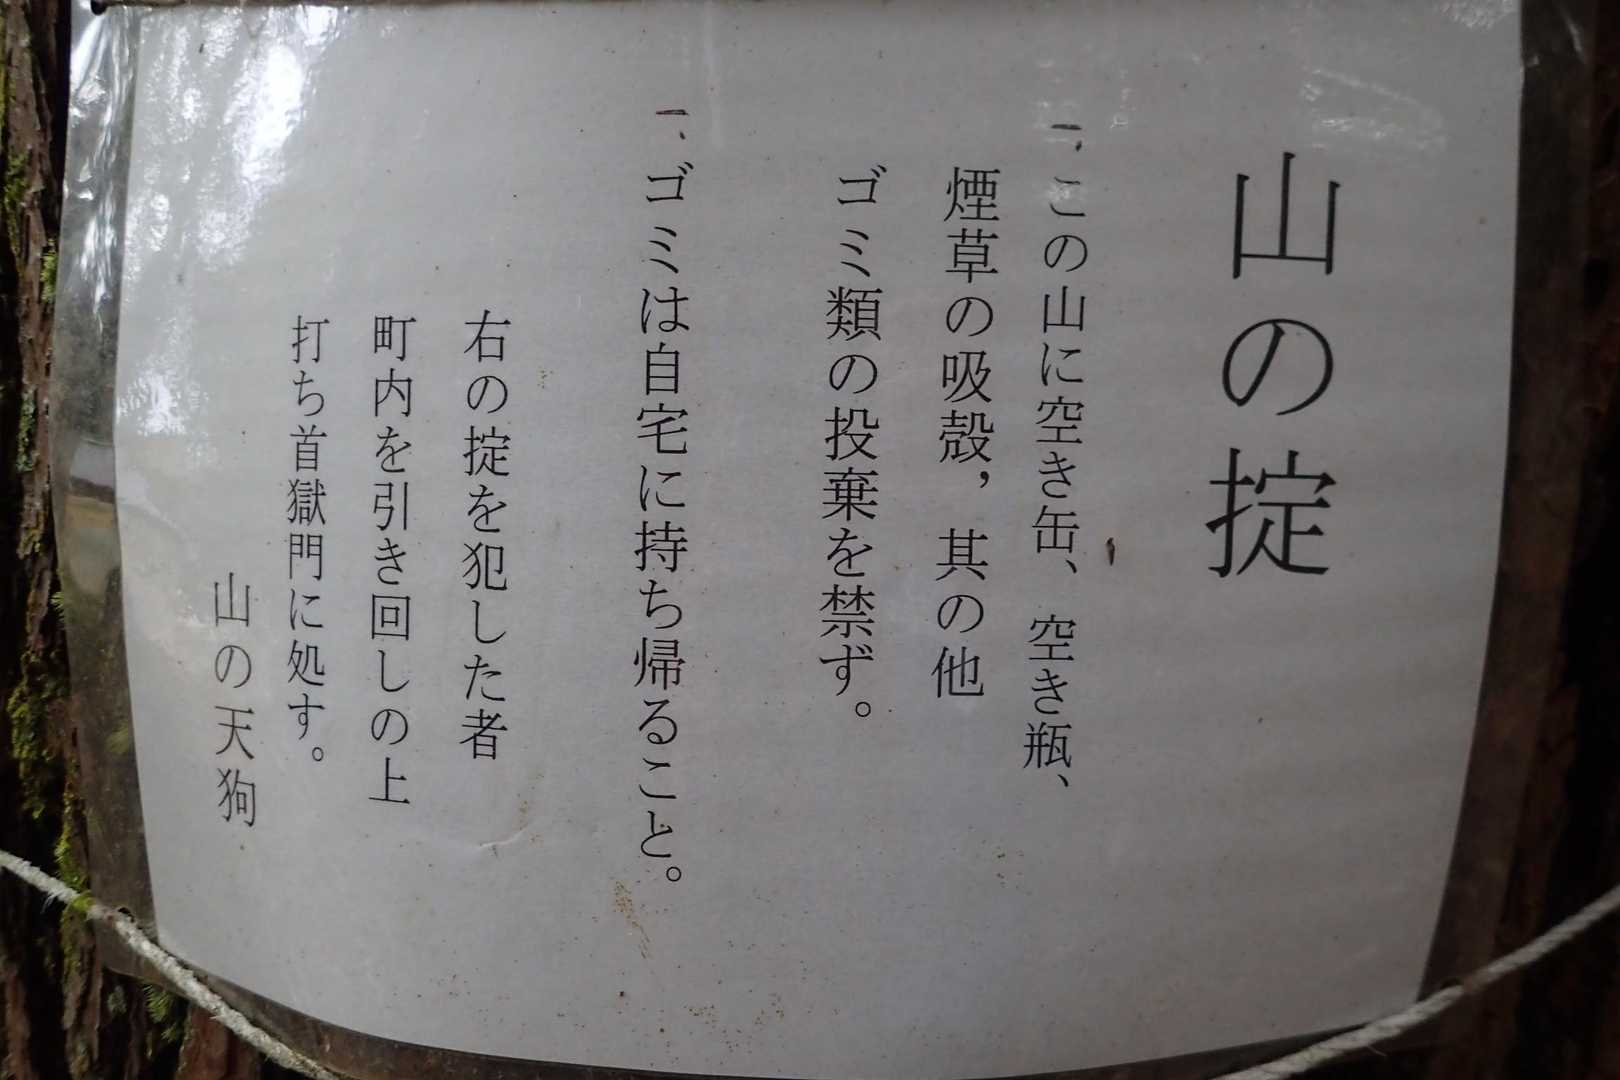 山の掟
一、この山に空き缶、空き瓶、
煙草の吸殻，其の他
ゴミ類の投棄を禁ず。
一、ゴミは自宅に持ち帰ること。
右の掟を犯した者
町内を引き回しの上
打ち首獄門に処す。
山の天狗